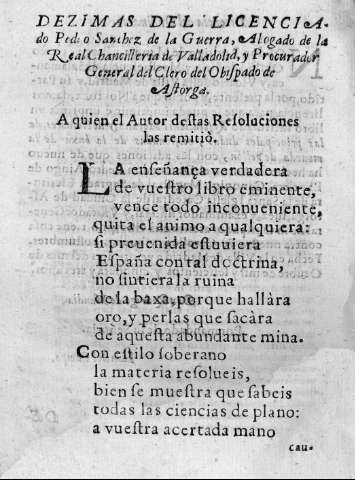 DEZIMAS DEL LICENCIA-
do Pedro Sanchez de la Guerra, Abogado de la
Real Chancilleria de Valladolid, y Procurador
General del Clero del Obispado de
Astorga.
A quien el Autor destas Resoluciones
las remitiò.
LA enseñança verdadera
de vuestro libro eminente,
vence todo inconueniente,
quita el animo a qualquiera:
si preuenida estuuiera
España con tal doctrina,
no sintiera la ruina
de la baxa, porque hallàra
oro, y perlas que sacàra
de aquesta abundante mina.
Con estilo soberano
la materia resolueis,
bien se muestra que sabeis
todas las ciencias de plano:
a vuestra acertada mano
cau-